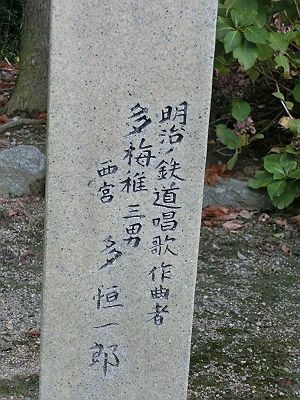 明治ノ鉄道唱歌作曲者
多梅稚三男
西宮 多恒一郎